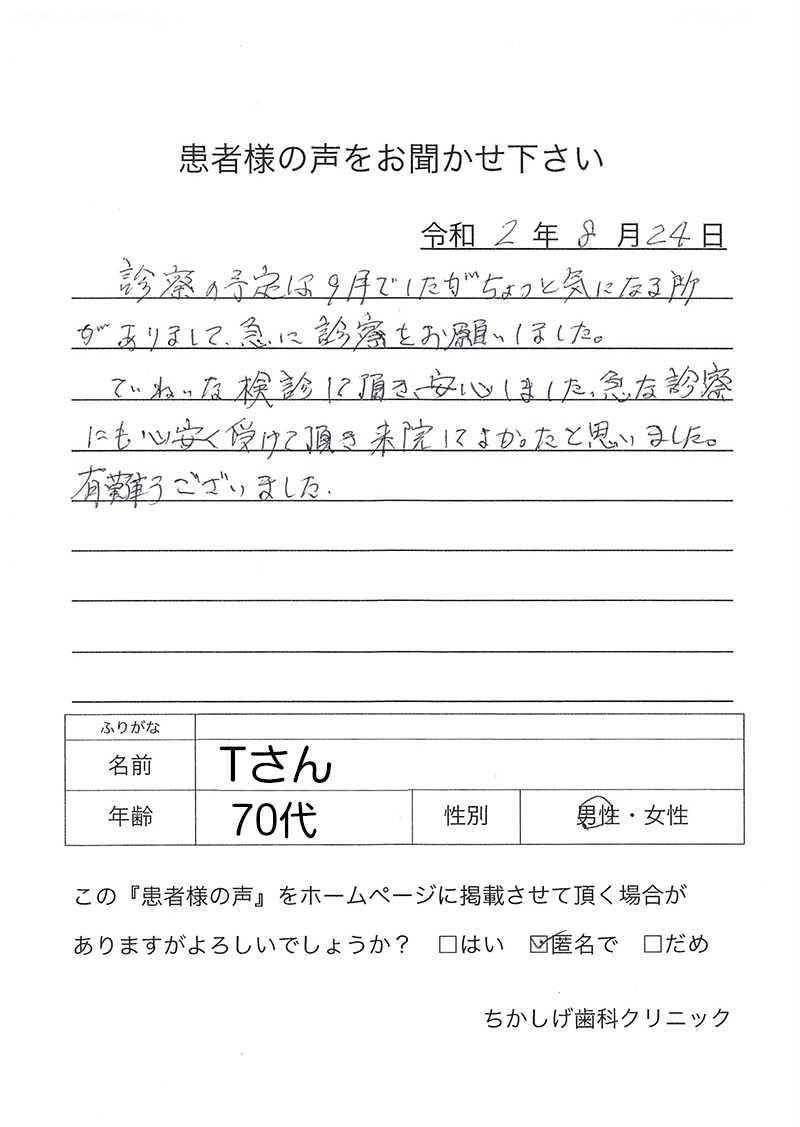 患者様の声をお聞かせ下さい
令和 2 年 8 月 24 日
診察の予定は9月でしたがちょっと気になる所
がありまして、急に診察をお願いしました。
ていねいな検診して頂き、安心しました、急な診察
にも心安く受けて頂き来院してよかったと思いました。
有難うございました。
ふりがな
名前 Tさん
年齢 70代 性別 男性・女性
この『患者様の声』をホームページに掲載させて頂く場合が
ありますがよろしいでしょうか? □はい ☑匿名で □だめ
ちかしげ歯科クリニック